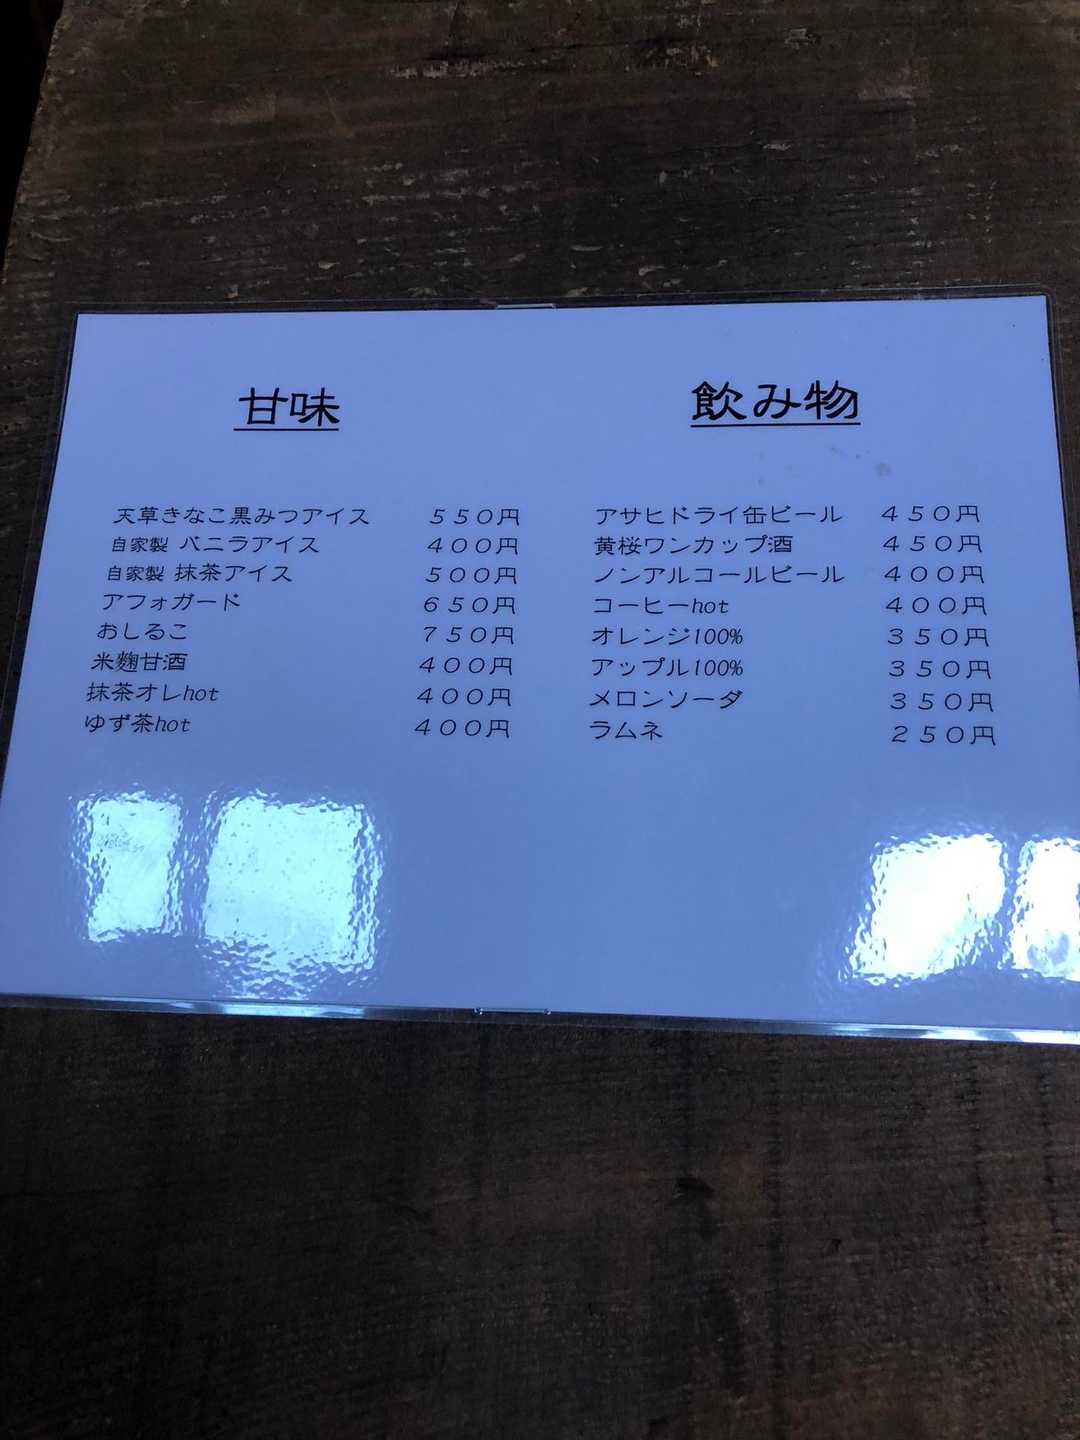 甘味
天草きなこ黒みつアイス ５５０円
自家製 バニラアイス ４００円
自家製 抹茶アイス ５００円
アフォガード ６５０円
おしるこ ７５０円
米麹甘酒 ４００円
抹茶オレhot ４００円
ゆず茶hot ４００円
飲み物
アサヒドライ缶ビール ４５０円
黄桜ワンカップ酒 ４５０円
ノンアルコールビール ４００円
コーヒーhot ４００円
オレンジ100% ３５０円
アップル100% ３５０円
メロンソーダ ３５０円
ラムネ ２５０円